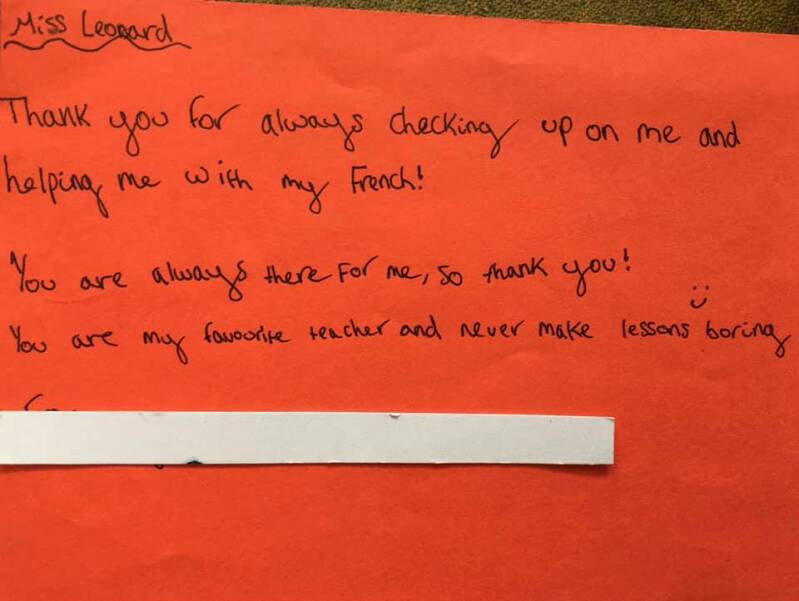 Miss Leonard
Thank you for always checking up on me and
helping me with my French!
You are always there for me, so thank you!
You are my favourite teacher and never make lessons boring